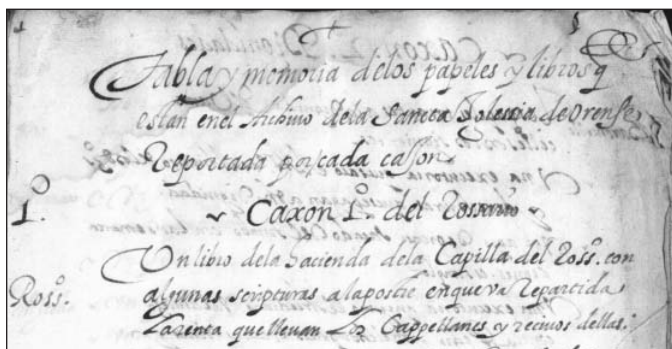 Tabla y memoria delos papeles y libros q
estan enel Archiuo dela Sancta Iglessia de Orense
Repartada por cada cason
1º. Caxon 1º. del Rossario
Un libro dela hacienda dela Capilla del Rossº. con
Rossº. algunas scripturas alapostre enque va Repartida
la renta que lleuan los Cappellanes y reciuos dellas.